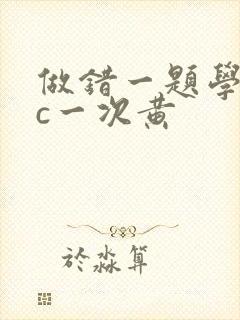 做錯一題學
c一次黃
於淼算